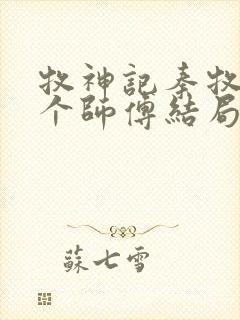 牧神記秦牧
个師傅結局
蘇七雪